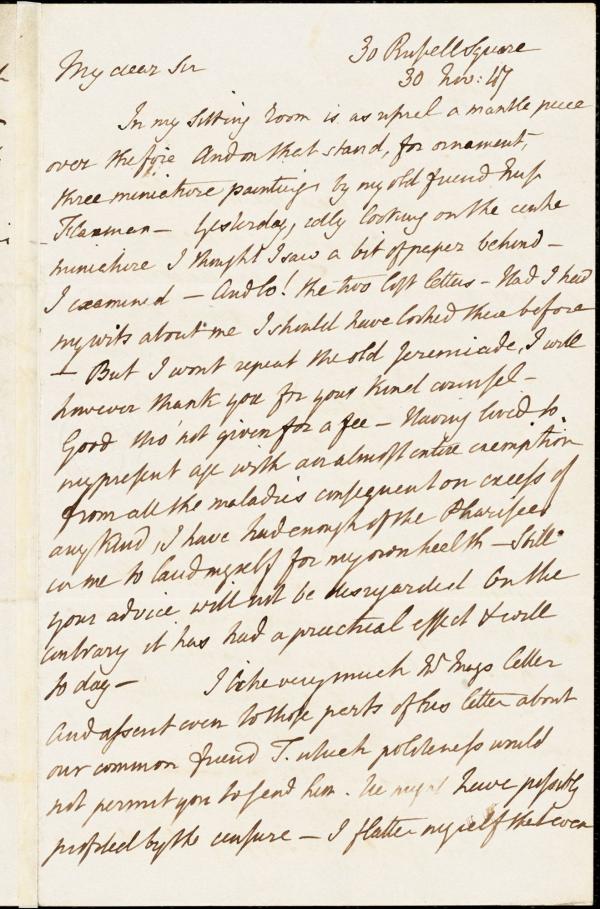 30 Russell Square
30 Nov: 47
My dear Sir
In my Sitting Room is as usual a mantle piece
over the fire And on that stand, for ornament,
three miniature paintings by my old friend Miss
Flaxman — Yesterday, idly looking on the centre
miniature I thought I saw a bit of paper behind —
I examined — And lo! the two lost letters — Had I had
my wits about me I should have looked there before
— But I wont repeat the old Jeremiade, I will
however thank you for your kind counsel —
Good tho' not given for a fee — Having lived to
my present age with an almost entire exemption
from all the maladies consequent on excess of
any kind, I have had enough of the Pharisee
in me to laud myself for my own health — Still
your advice will not be disregarded On the
contrary it has had a practical effect & will
to day — I like very much Mr Mays letter
And assent even to those parts of his letter about
our common friend T. which politeness would
not permit you to send him. He might have possibly
profited by the censure — I flatter myself that even